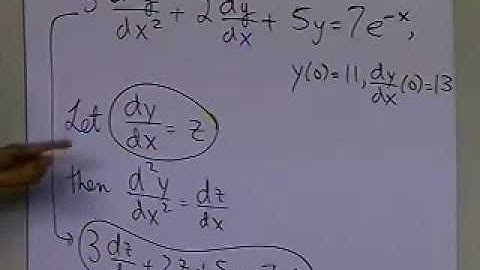 3 d²y/dx² + 2 dy/dx + 5y = 7e^-x,
y(0) = 11, dy/dx (0) = 13
Let dy/dx = z
then d²y/dx² = dz/dx
3 dz/ + 2z + 5